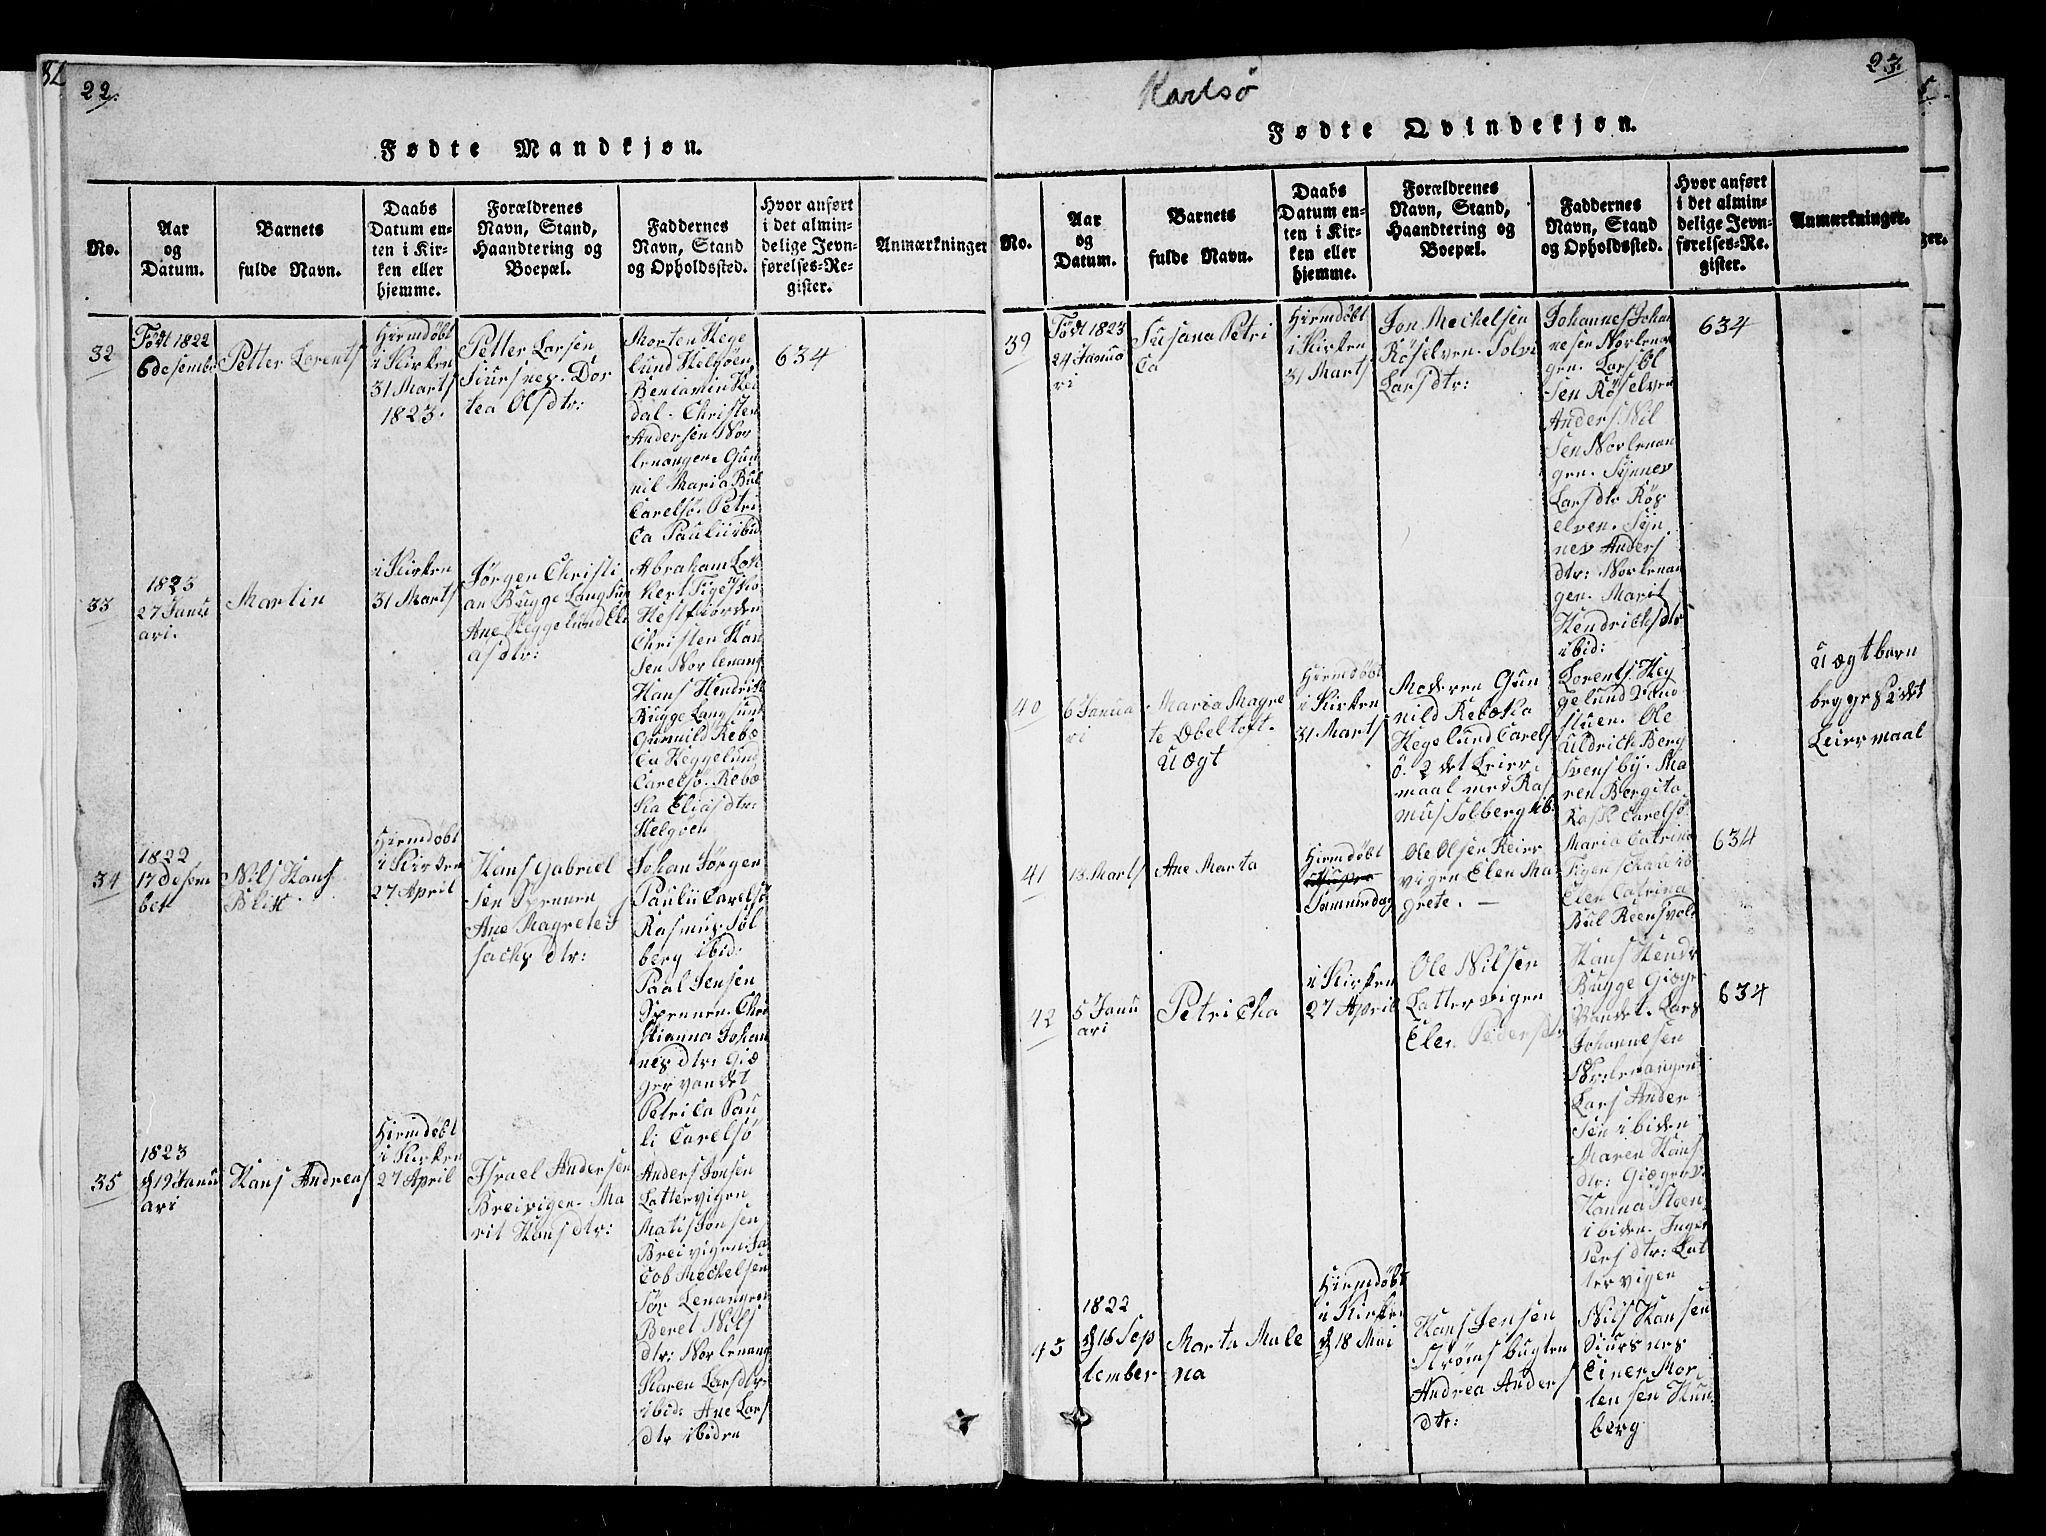 22.
Fødte Mandkjøn.
No.
Aar
og
Datum.
Barnets
fulde Navn.
Daabs
Datum en-
ten i Kir-
ken eller
hjemme.
Forældrenes
Navn, Stand,
Haandtering og
Boepæl.
Faddernes
Navn, Stand
og Opholdssted.
Hvor anført
i det almin-
delige Jevn-
førelses-Re-
gister.
Anmærkninger
32
Født 1822
6 desembr
Petter Lorents
Hiemdøbt
i Kirken
31 Marts
1823.
Petter Larsen
Siursnes. Dor
tea Olsdtr:
Morten Hege
lund Helgøen,
Benjamin Hei
dal. Christen
Andersen Nor
lenangen. Gun
nil Maria Bul
Carelsö. Petri
ca Pauli ibid
634
33
1823
27 Janu
ari.
Martin
i Kirken
31 Marts
Jørgen Christi
an Bugge Langsun
Ane Heggelund Eli
asdtr:
Abraham Loc
kert
Hestfiorden
Christen Han
sen Norlenang
Hans Hendrik
Bugge Langsund
Gunnild Rebe
ca Heggelund
Carelsö. Rebæ
ka Eliasdtr:
Helgöen
34
1822
17 Desem
ber
Nils Hans
Blix
Hiemdøbt
i Kirken
27 April
Hans Gabriel
sen Spennen
Ane Magrete I
sachs dtr:
Johan Jörgen
Pauli Carelsö
Rasmus Sol
berg ibid:
Paal Jensen
Spennen. Chri
stianna Johan
nes dtr: Giæ
ger vandet
Petrica Pau
li Carelsö
35
1823
d 19 Janu
ari
Hans Andreas
Hiemdøbt
i Kirken
27 April
Israel Andersen
Breivigen. Ma
rit Hansdtr:
Anders Jonsen
Lattervigen
Matis Jonsen
Breivigen. Ja
cob Mechelsen
Sör Lenangen
Beret Nils
dtr: Norlenang
Karen Larsdtr
ibid: Ane Lars
dtr ibiden
Karlsø
23.
Fødte Qvindekjøn.
No.
Aar
og
Datum.
Barnets
fulde Navn.
Daabs
Datum en-
ten i Kir-
ken eller
hjemme.
Forældrenes
Navn, Stand,
Haandtering og
Boepæl.
Faddernes
Navn, Stand
og Opholdssted.
Hvor anført
i det almin-
delige Jevn-
førelses-Re-
gister.
Anmærkninger.
39
Født 1823
24 Janua
ri
Susana Petri
ca
Hiemdöbt
i Kirken
31 Marts
Jon Mechelsen
Röselven. Solvi
Larsdtr:
Johannes Johan
nesen Norlenan
gen. Lars Ol
sen Röselven
Anders Nil
sen Norlenan
gen. Synnev
Larsdtr Rös
elven. Syn
nev Anders
dtr: Norlenan
gen. Marit
Hendrichsdtr
ibid:
634
40
6 Janua
ri
Maria Magre
te Ebeltoft.
Uægt
Hiemdöbt
i Kirken
31 Marts
Moderen Gun
nild Rebæka
Hegelund Carels
ö. 2 det Leier
maal med Ras
mus Solberg ib:
Lorents Heg
gelund
stuen. Ole
Uldrich Berg
Svensby. Ma
ren Bergita
Carelsö
Uægt barn
begges 2 det
Leiermaal
41
13 Marts
Ane Marta
Hiemdöbt
Sammedag
Ole Olsen Reier
vigen Elen Ma
grete. —
Maria Catrina
Elen Catrina
Bul Reensvold
634
42
5 Janu
ari
Petricka
i Kirken
27 April
Ole Nilsen
Lattervigen
Elen Pedersdtr
Hans Hendr
Bugge Giæger
Vandet. Lars
Johannesen
Norlenangen
Lars Ander
sen ibiden
Maren Hans
dtr: Giæger v
Hanna
ibiden. Inger
Persdtr: Lat
tervigen
634
43
1822
d 16 Sep
tember
Marta Male
na
Hiemdöbt
i Kirken
d 18 Mai
Hans Jensen
Strömsbugten
Andrea Anders
dtr:
Nils Hansen
Siursnes
Einer Mor
tensen Kun
berg